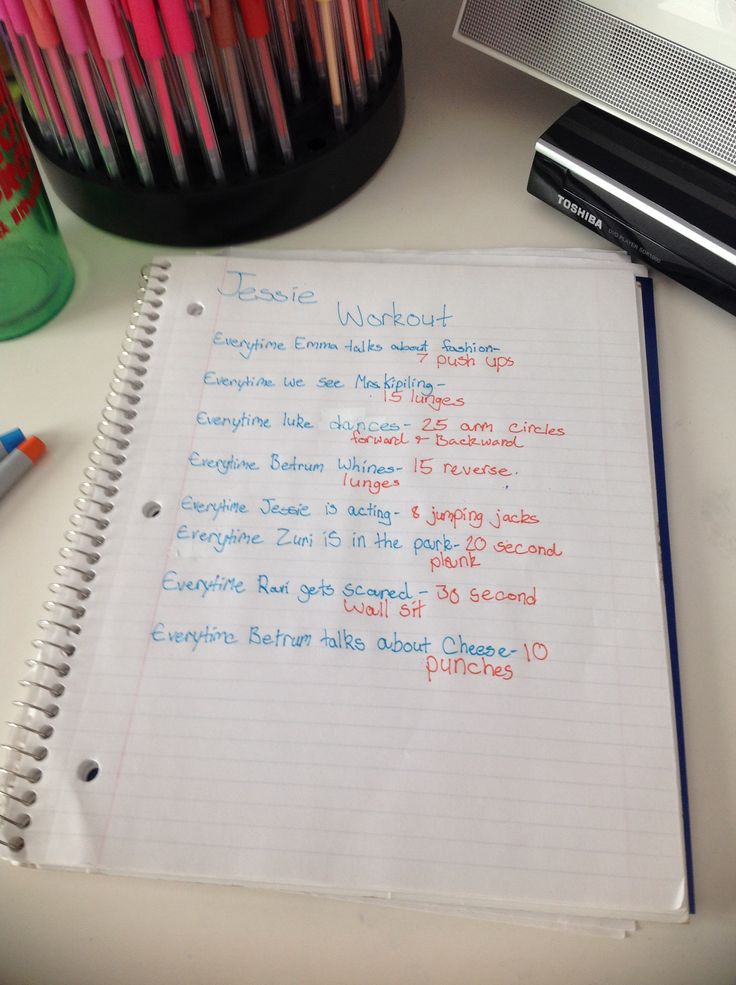 TOSHIBA
DVD PLAYER SDK1000
Jessie
Workout
Everytime Emma talks about fashion-
7 push ups
Everytime we see Mrs.Kipiling-
15 lunges
Everytime luke dances- 25 arm circles
forward & Backward
Everytime Betrum Whines- 15 reverse.
lunges
Everytime Jessie is acting- 8 jumping jacks
Everytime Zuri is in the park- 20 second
plank
Everytime Ravi gets scared- 30 second
Wall sit
Everytime Betrum talks about Cheese- 10
punches